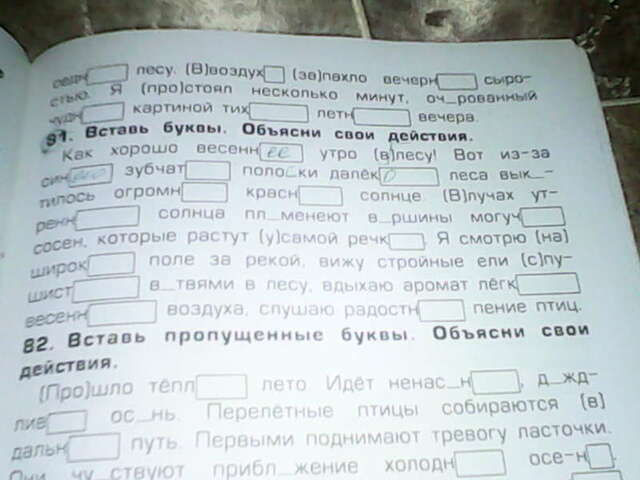 лесу. (В)воздух▭ (за)пахло вечерн▭ сыро-
стью. Я (про)стоял несколько минут, оч_рованный
чудн▭ картиной тих▭ летн▭ вечера.
81. Вставь буквы. Объясни свои действия.
Как хорошо весенн ее утро (в)лесу! Вот из-за
син зубчат▭ полоски далёк о леса вык_-
тилось огромн▭ красн▭ солнце. (В)лучах ут-
ренн▭ солнца пл_менеют в_ршины могуч▭
сосен, которые растут (у)самой речк▭. Я смотрю (на)
широк▭ поле за рекой, вижу стройные ели (с)пу-
шист▭ в_твями в лесу, вдыхаю аромат лёгк▭
весенн▭ воздуха, слушаю радостн▭ пение птиц.
82. Вставь пропущенные буквы. Объясни свои
действия.
(Про)шло тёпл▭ лето. Идёт ненас_н▭, д_жд-
лив▭ ос_нь. Перелётные птицы собираются (в)
дальн▭ путь. Первыми поднимают тревогу ласточки.
Они чу_ствуют прибл_жение холодн▭ осе-н▭.